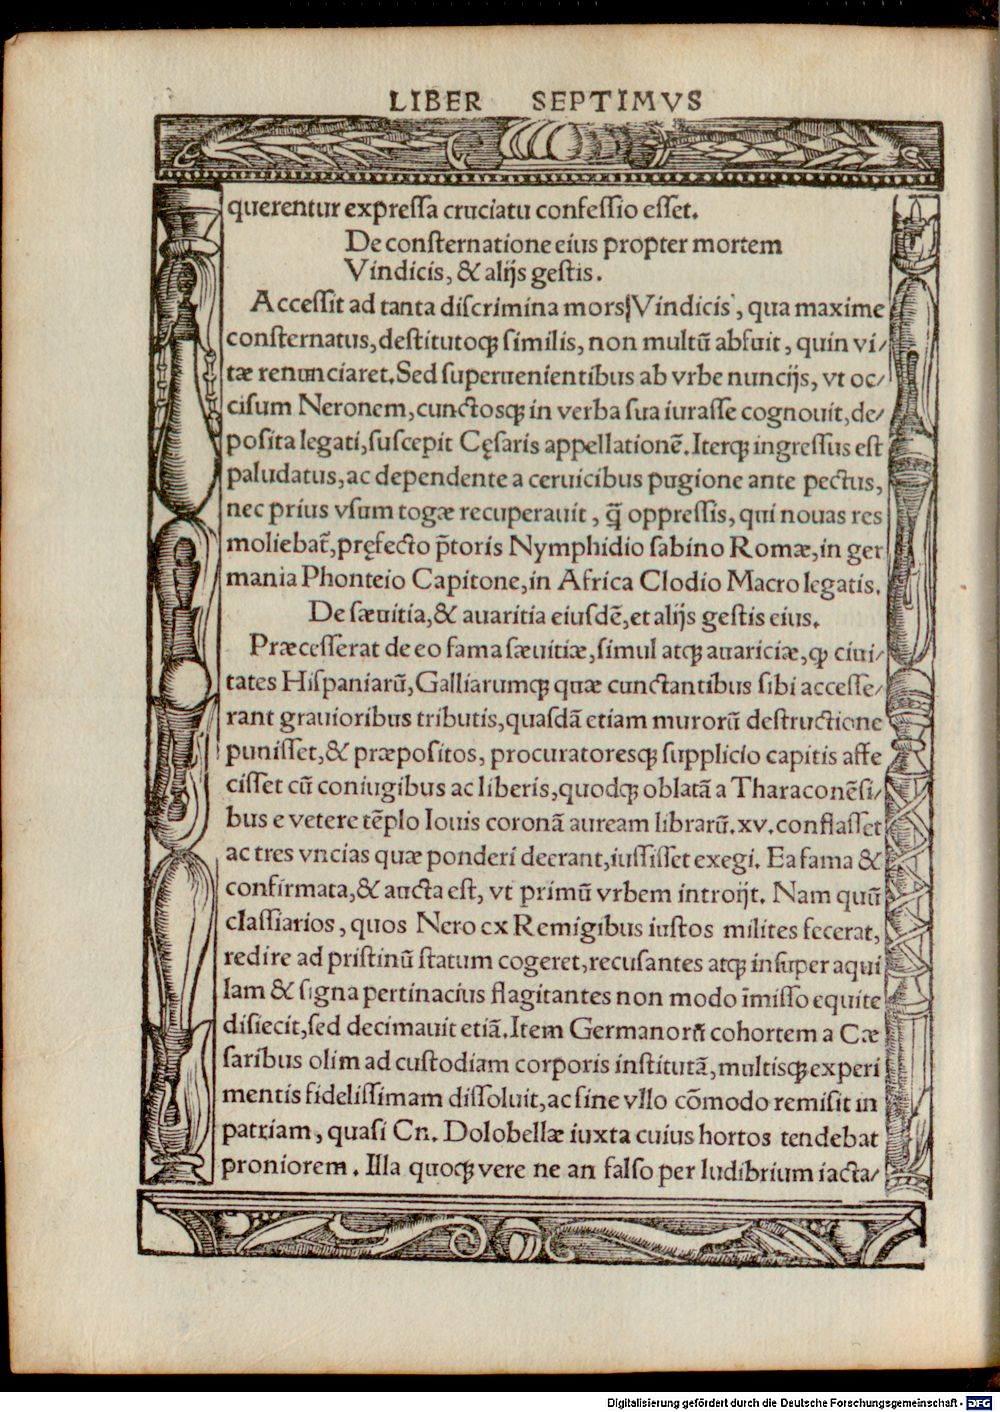 LIBER SEPTIMVS
querentur expreſſa cruciatu confeſſio eſſet.
De conſternatione eius propter mortem
Vindicis, & alijs geſtis.
Acceſſit ad tanta diſcrimina mors Vindicis, qua maxime
conſternatus, deſtitutoqꝫ ſimilis, non multū abfuit, quin vi/
tæ renunciaret. Sed ſuperuenientibus ab vrbe nuncijs, vt oc/
ciſum Neronem, cunctosqꝫ in verba ſua iuraſſe cognouit, de/
poſita legati, ſuſcepit Cęſaris appellationē. Iterqꝫ ingreſſus eſt
paludatus, ac dependente a ceruicibus pugione ante pectus,
nec prius vſum togæ recuperauit, q̄ oppreſſis, qui nouas res
moliebat̄, pręfecto p̄toris Nymphidio ſabino Romæ, in ger
mania Phonteio Capitone, in Africa Clodio Macro legatis.
De ſæuitia, & auaritia eiuſdē, et alijs geſtis eius.
Præceſſerat de eo fama ſæuitiæ, ſimul atqꝫ auariciæ, ꝙ ciui/
tates Hiſpaniarū, Galliarumqꝫ quæ cunctantibus ſibi acceſſe/
rant grauioribus tributis, quaſdā etiam murorū deſtructione
puniſſet, & præpoſitos, procuratoresqꝫ ſupplicio capitis affe
ciſſet cū coniugibus ac liberis, quodqꝫ oblatā a Tharaconēſi/
bus e vetere tēplo Iouis coronā auream librarū. xv. conflaſſet
ac tres vncias quæ ponderi deerant, iuſſiſſet exegi. Ea fama &
confirmata, & aucta eſt, vt primū vrbem introijt. Nam quū
claſſiarios, quos Nero ex Remigibus iuſtos milites fecerat,
redire ad priſtinū ſtatum cogeret, recuſantes atqꝫ inſuper aqui
lam & ſigna pertinacius flagitantes non modo īmiſſo equite
diſiecit, ſed decimauit etiā. Item Germanorū cohortem a Cæ
ſaribus olim ad cuſtodiam corporis inſtitutā, multisqꝫ experi
mentis fideliſſimam diſſoluit, ac ſine vllo cōmodo remiſit in
patriam, quaſi Cn. Dolobellæ iuxta cuius hortos tendebat
proniorem. Illa quoqꝫ vere ne an falſo per ludibrium iacta/
Digitalisierung gefördert durch die Deutsche Forschungsgemeinschaft - DFG